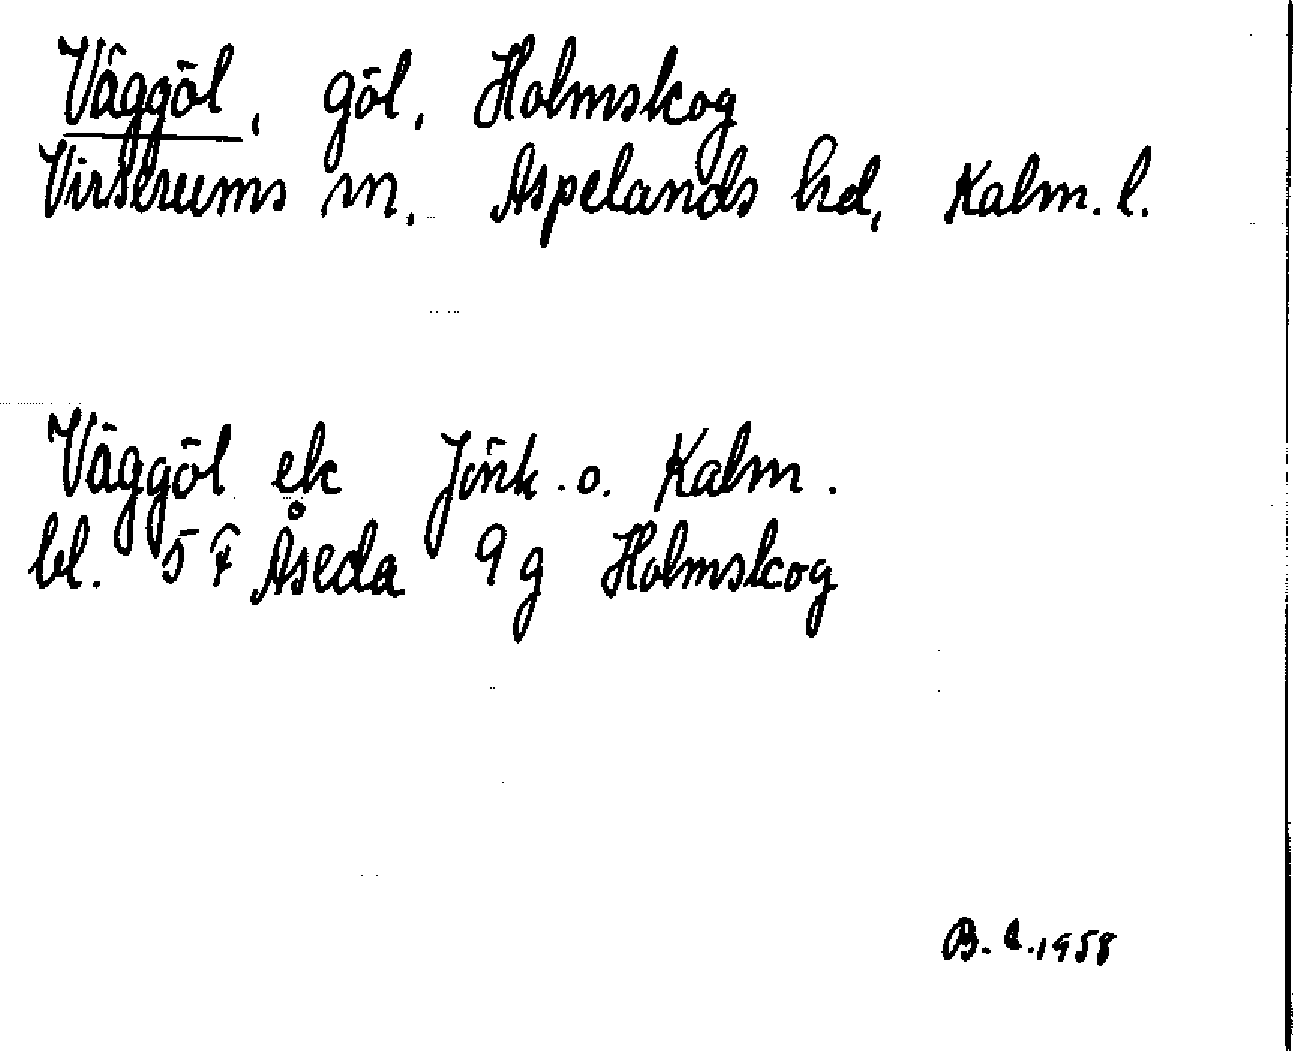 Väggöl, göl, Holmskog
Virserums sn. Aspelands hd, Kalm. l.
Väggöl ek Jönk. o. Kalm.
bl. 5 F Åseda 9 g Holmskog
B. E. 1958